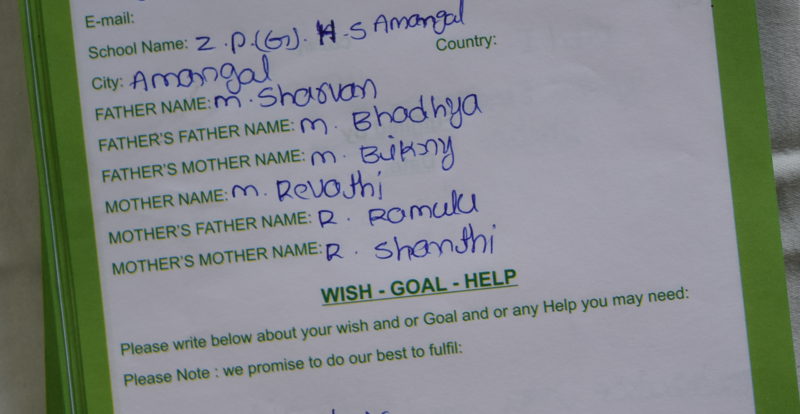 E-mail:
School Name: Z.P.(G). H.S Amangal
City: Amangal Country:
FATHER NAME: M. Sharvan
FATHER'S FATHER NAME: M. Bhadhya
FATHER'S MOTHER NAME: M.
MOTHER NAME: M. Revathi
MOTHER'S FATHER NAME: R. Ramulu
MOTHER'S MOTHER NAME: R. Shanthi
WISH - GOAL - HELP
Please write below about your wish and or Goal and or any Help you may need:
Please Note : we promise to do our best to fulfil: